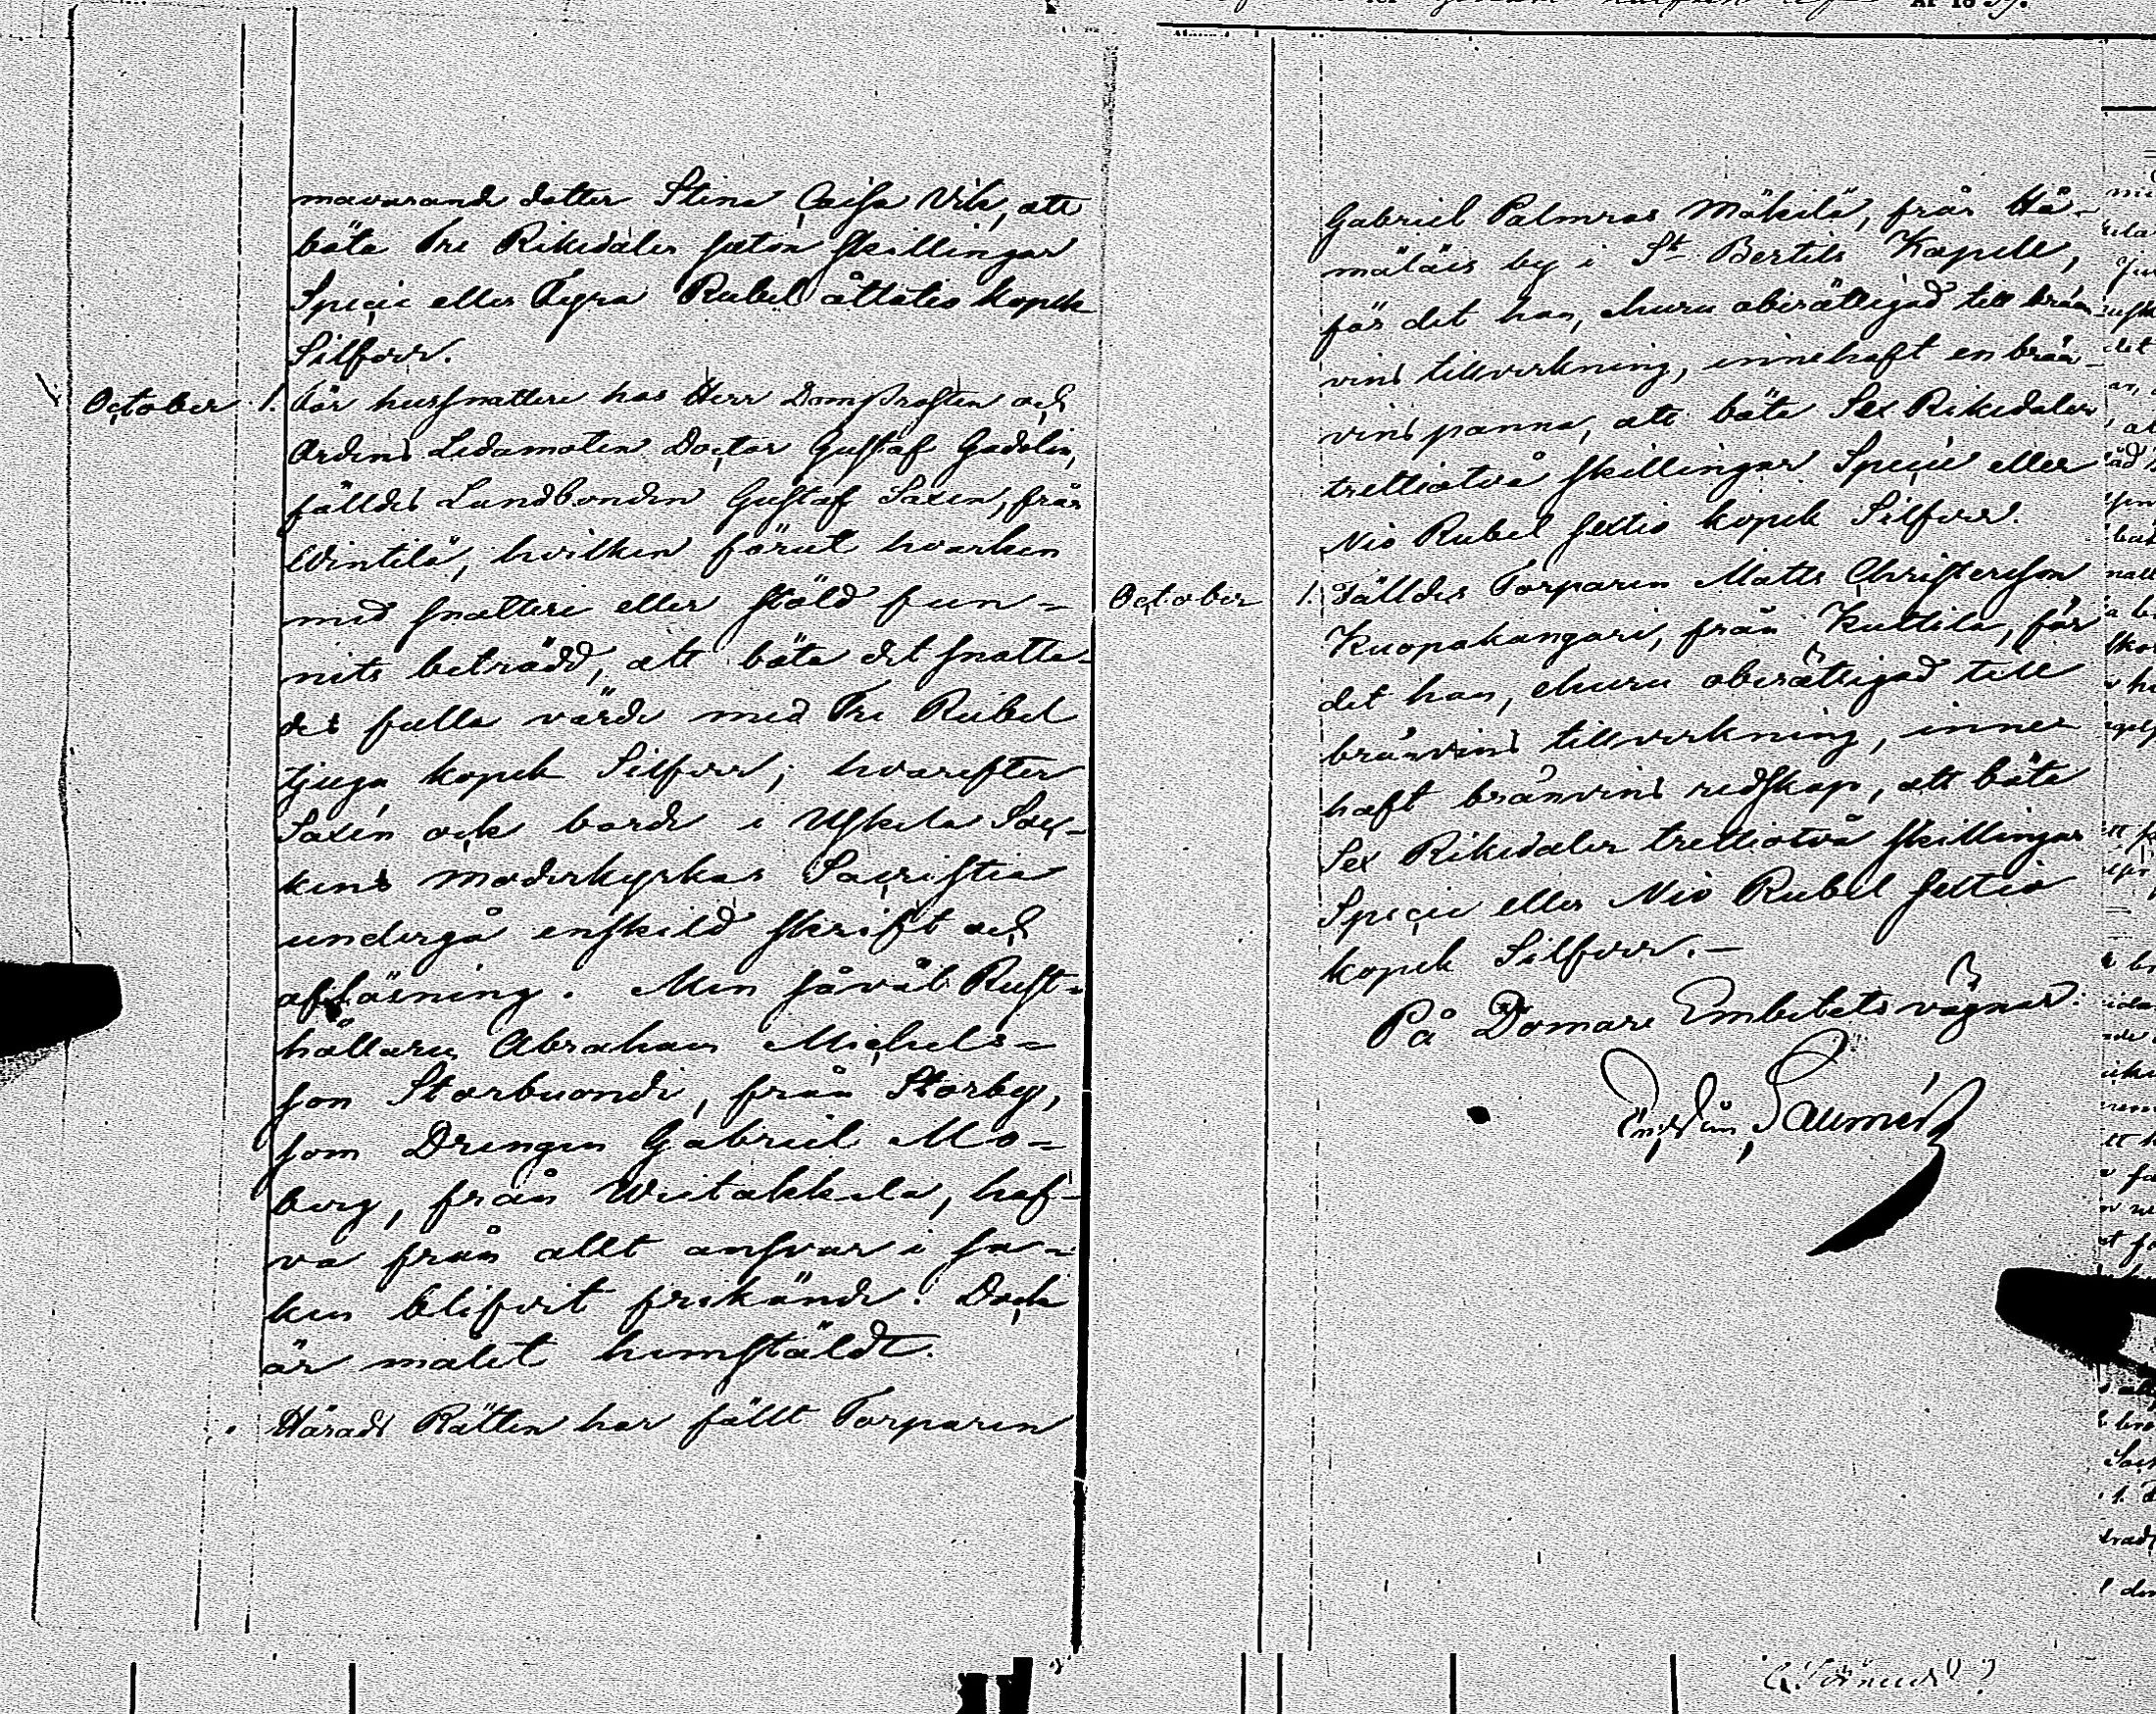 mavarande dotter Stina Caisa Vik, att
böta Tre Riksdaler sexton skillingar
Specie eller Fyra Rubel åttatio kopek
Silfver.
October 1. För hussnatteri hos Herr Domprosten och
Ordens Ledamoten Doctor Gustaf Gadolin,
fälldes Landbonden Gustaf Saxen, från
Wintelä, hvilken förut hvarken
med snatteri eller stöld fun-
nits beträdd, att böta det snatta-
des fulla värde med Tre Rubel
tjugo kopek Silfver; hvarefter
Saxén ock borde i Uskela Soc-
kens moderkyrkas Sacristia
undergå enskild skrift och
aflösning. Men såväl Rust-
hållaren Abraham Michels-
son Storbuonde, från Storby,
som Drengen Gabriel Mo-
berg, från Wiitakkala, haf-
va från allt ansvar i sa-
ken blifvit frikände. Dock
är målet hemstäldt.
Härads Rätten har fällt Torparen
Gabriel Palmros Mäkilä, från Hä-
mäläis by i S:t Bertils Kapell,
för det han, ehuru oberättigad till brän-
vins tillverkning, innehaft en brän-
vins panna, att böta Sex Riksdaler
trettiotvå skillingar Specie eller
Nio Rubel sextio kopek Silfver.
October 1. Fälldes Torparen Matts Christersson
Kuopakangari, från Kuttila, för
det han, ehuru oberättigad till
bränvins tillverkning, inne
haft bränvins redskap, att böta
Sex Riksdaler trettiotvå skillingar
Specie eller Nio Rubel sextio
kopek Silfver.—
På Domare Embetets vägnar.